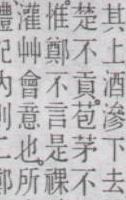 其上酒滲下去
楚不貢苞茅不
惟鄭不言是祼
灌艸會意也所
禮記內則二鄭